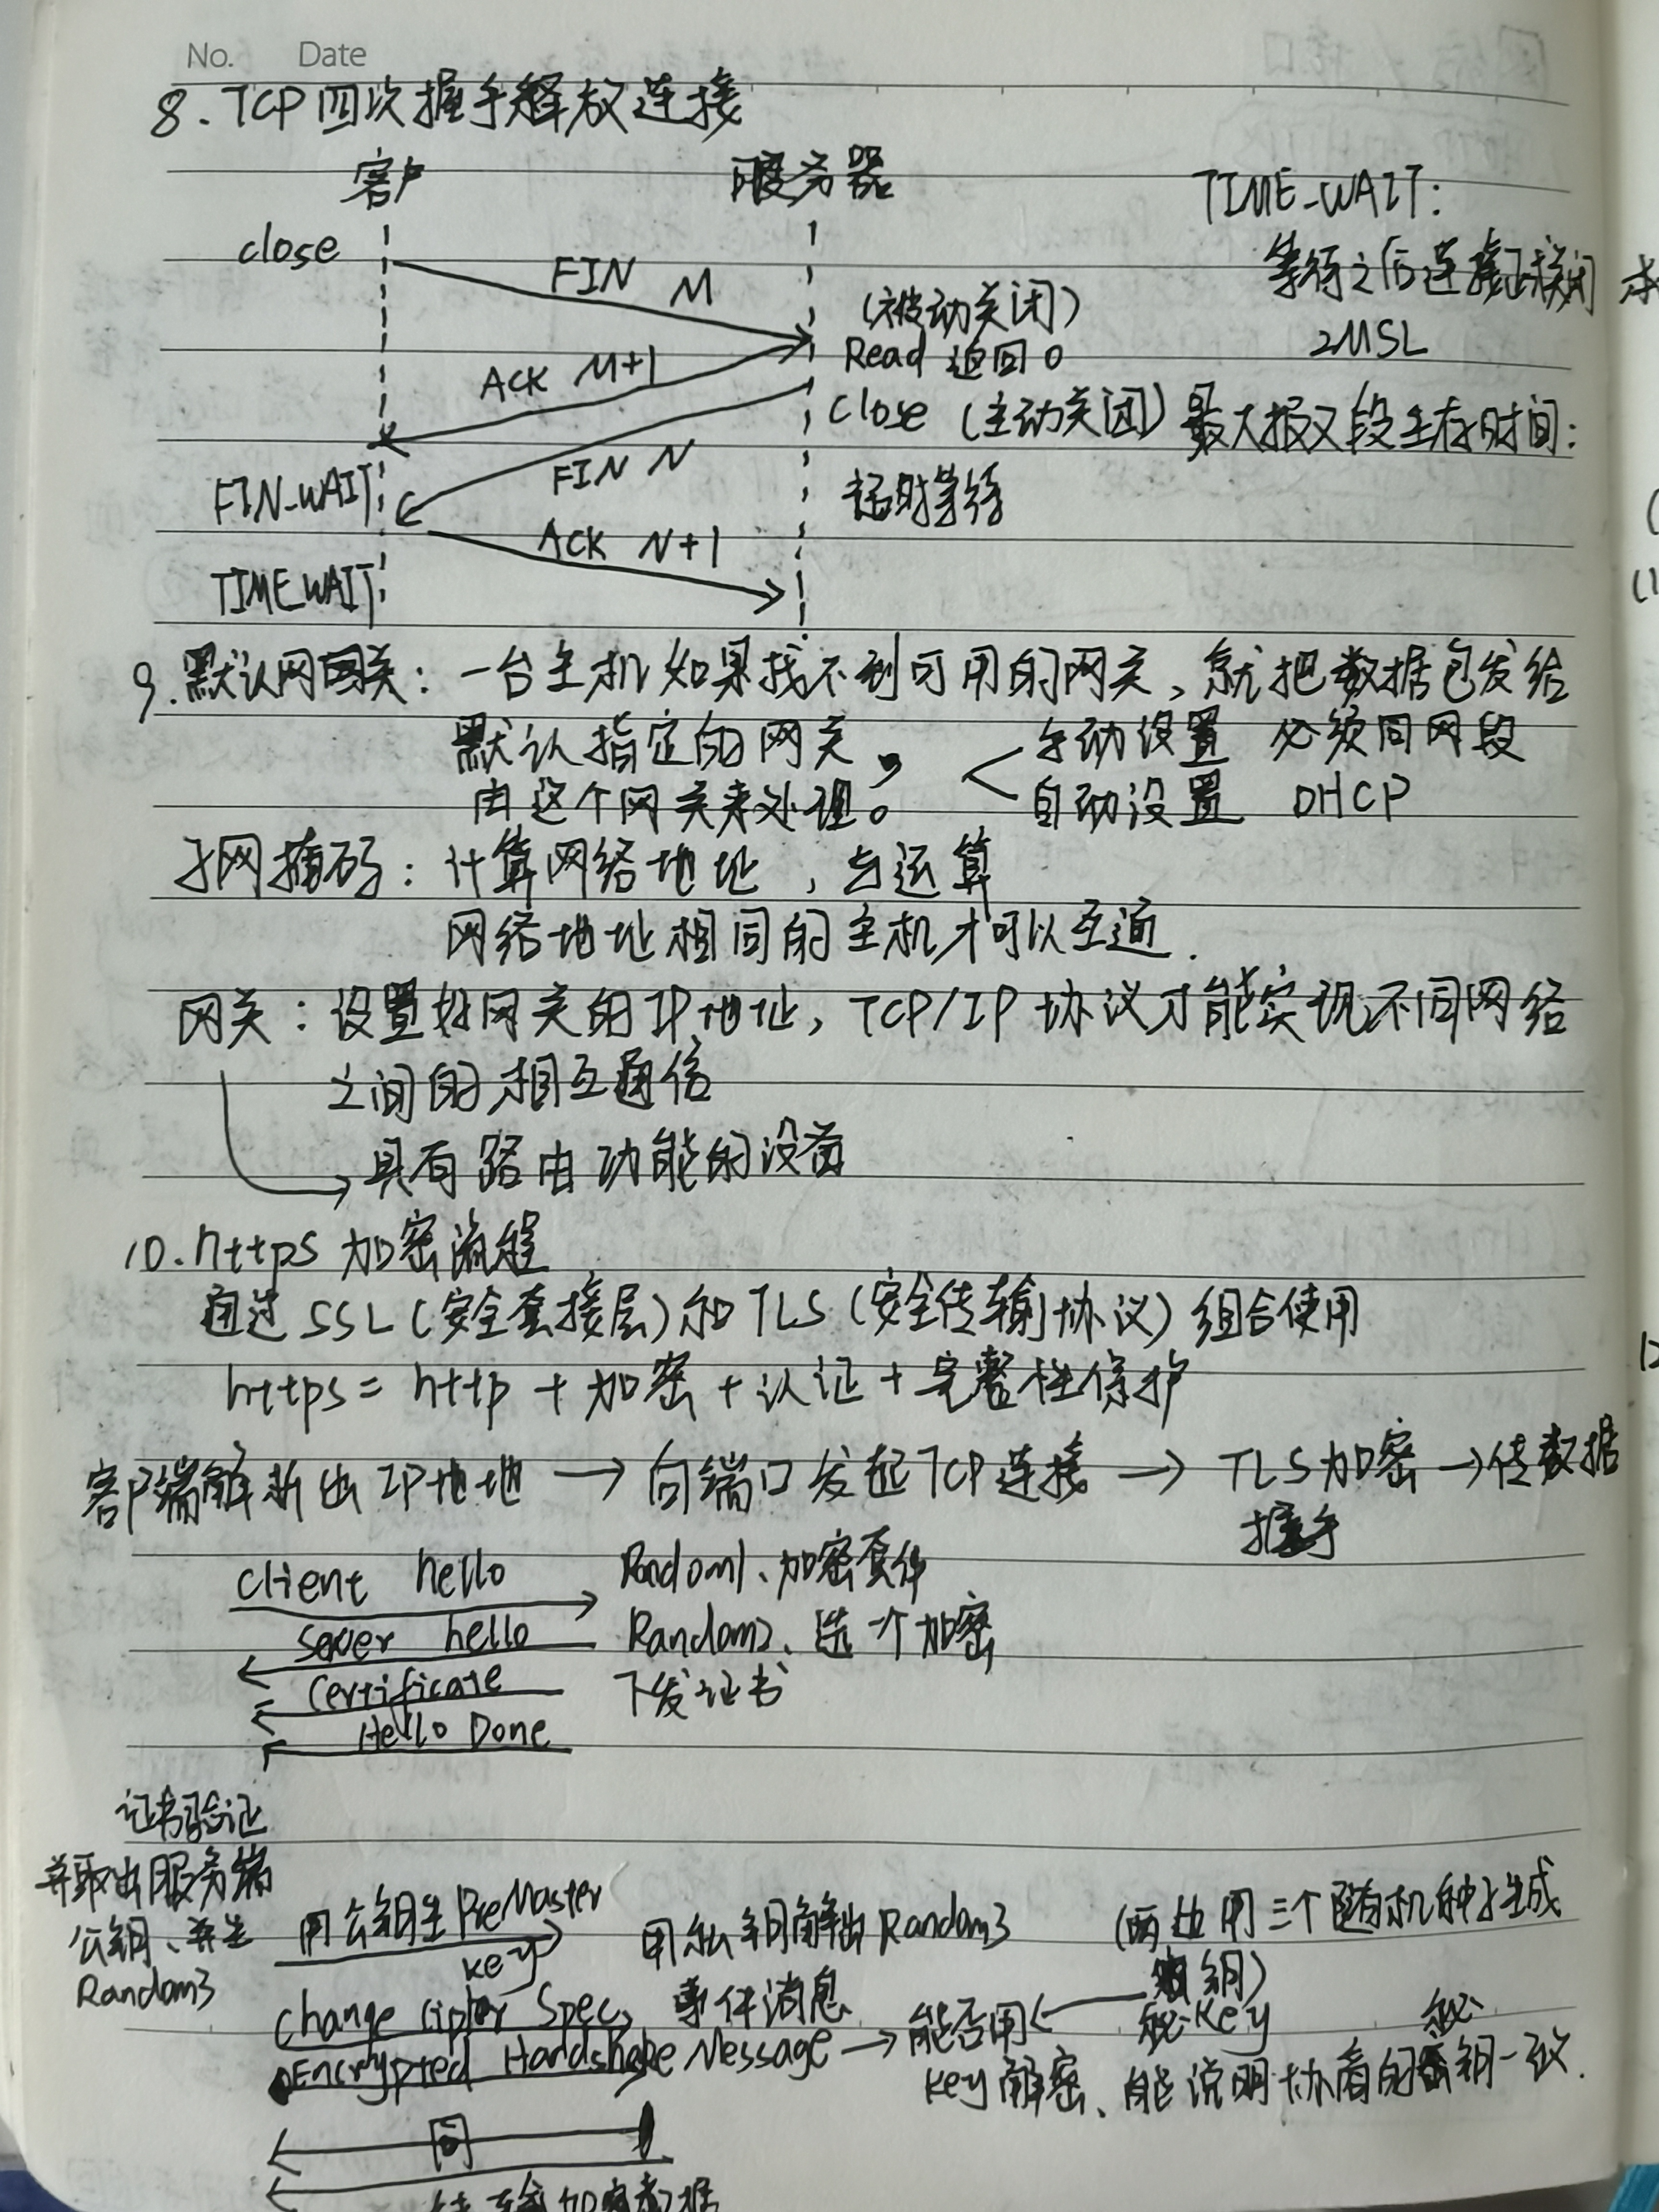 No. Date
8. TCP 四次握手释放连接
客户 服务器
TIME_WAIT:
close
FIN M
等待之后连接关闭
(被动关闭)
2MSL
Read 返回 0
ACK M+1
close (主动关闭) 最大报文段生存时间:
FIN N
FIN_WAIT
超时等待
ACK N+1
TIME_WAIT
9. 默认网关: 一台主机如果找不到可用的网关, 就把数据包发给
默认指定的网关, 手动设置 必须同网段
由这个网关来处理。 自动设置 DHCP
子网掩码: 计算网络地址, 与运算
网络地址相同的主机才可以互通.
网关: 设置好网关的IP地址, TCP/IP 协议才能实现不同网络
之间的相互通信
→ 具有路由功能的设备
10. https 加密流程
通过 SSL (安全套接层) 和 TLS (安全传输协议) 组合使用
https = http + 加密 + 认证 + 完整性保护
客户端解析出 IP地地 → 向端口发起TCP连接 → TLS加密 → 传数据
握手
client hello Random1、加密套件
Sever hello Random2、选一个加密
Certificate 下发证书
Hello Done
证书验证
并取出服务端
公钥、并生
Random3
用公钥生 PreMaster
key
用私钥解出Random3
(两边用三个随机种子生成
钥)
Change Cipher Spec 事件消息
秘key
Encrypted Handshake Message → 能否用
key解密、能说明协商的秘钥一致.
同
传输加密数据